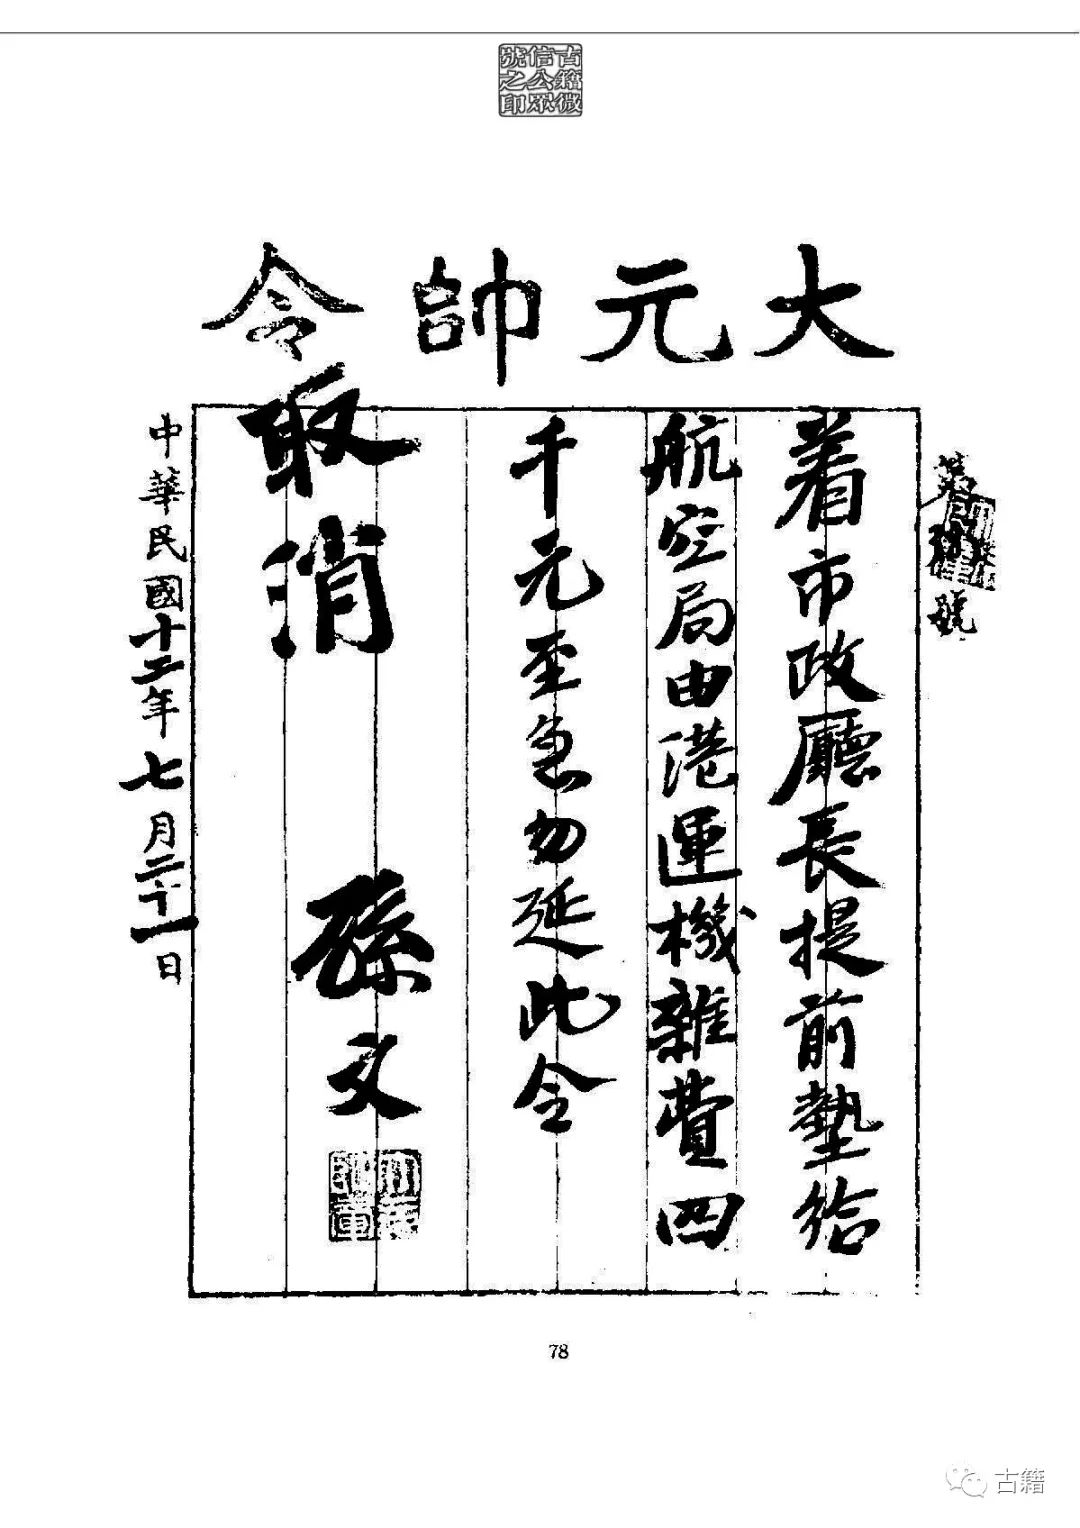 古籍微
信公眾
號之印
大元帥令
第號
着市政廳長提前墊給
航空局由港運機雜費四
千元至急勿延此令
取消
孫文
中華民國十二年七月二十一日
78
古籍